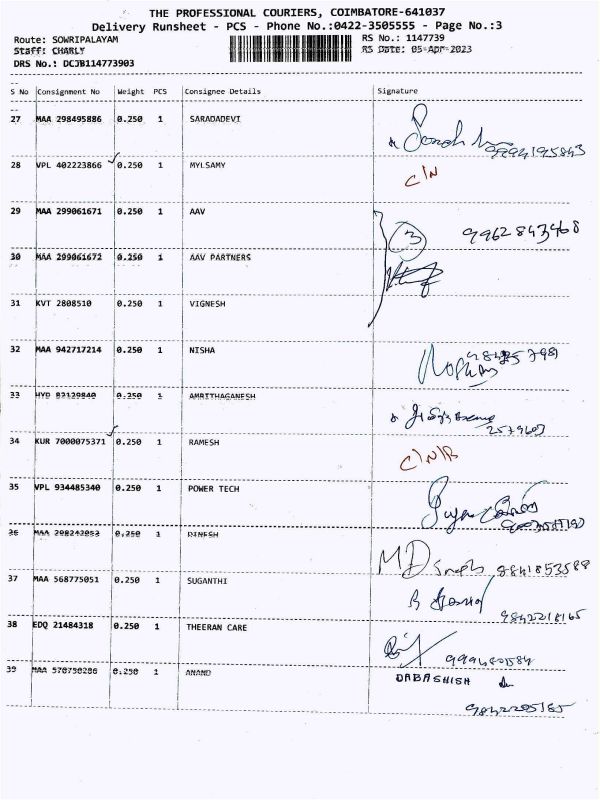 THE PROFESSIONAL COURIERS, COIMBATORE-641037
Delivery Runsheet - PCS - Phone No.:0422-3505555 - Page No.:3
Route: SOWRIPALAYAM RS No.: 1147739
Staff: CHARLY RS Date: 05-Apr-2023
DRS No.: DCJB114773903
S No Consignment No Weight PCS Consignee Details Signature
27 MAA 298495886 0.250 1 SARADADEVI
28 VPL 402223866 0.250 1 MYLSAMY C/N
29 MAA 299061671 0.250 1 AAV 3 9962843468
30 MAA 299061672 0.250 1 AAV PARTNERS
31 KVT 2808510 0.250 1 VIGNESH
32 MAA 942717214 0.250 1 NISHA
33 HYD 82129840 0.250 1 AMRITHAGANESH
34 KUR 7000075371 0.250 1 RAMESH C/N/R
35 VPL 934485340 0.250 1 POWER TECH
36 0.250 1 DINESH
MD 9841853588
37 MAA 568775051 0.250 1 SUGANTHI
9842218165
38 EDQ 21484318 0.250 1 THEERAN CARE
39 MAA 570750286 0.250 1 ANAND DABASHISH
9842205185